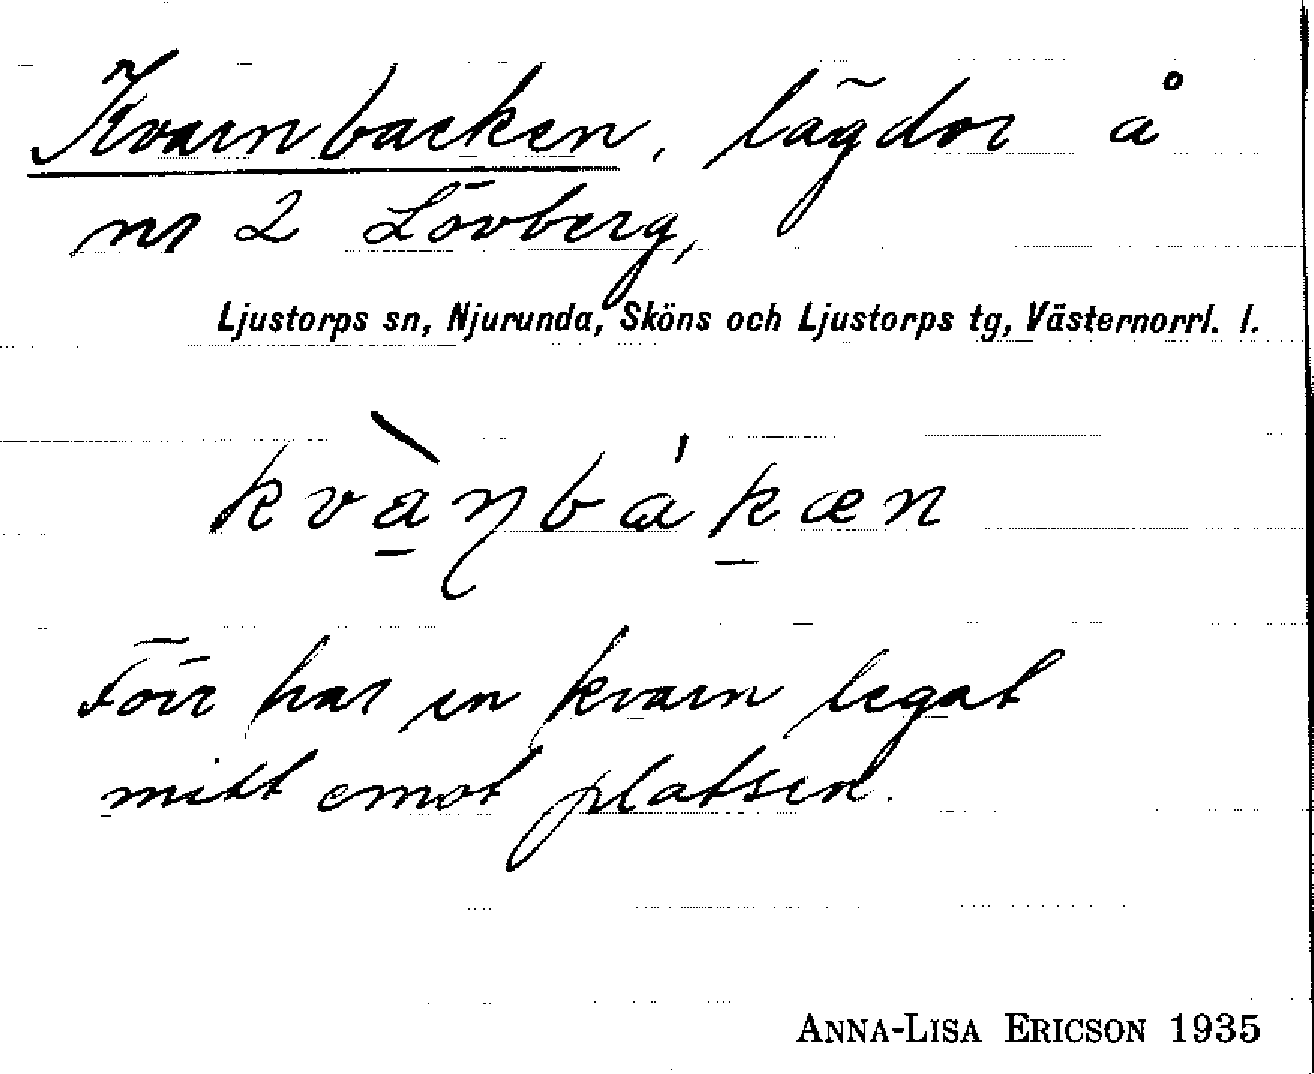 Kvarnbacken, lägdor å
nr 2 Lövberg,
Ljustorps sn, Njurunda, Sköns och Ljustorps tg, Västernorrl. l.
kvà̱ɳbák̠æn
Förr har en kvarn legat
mitt emot platsen.
ANNA-LISA ERICSON 1935